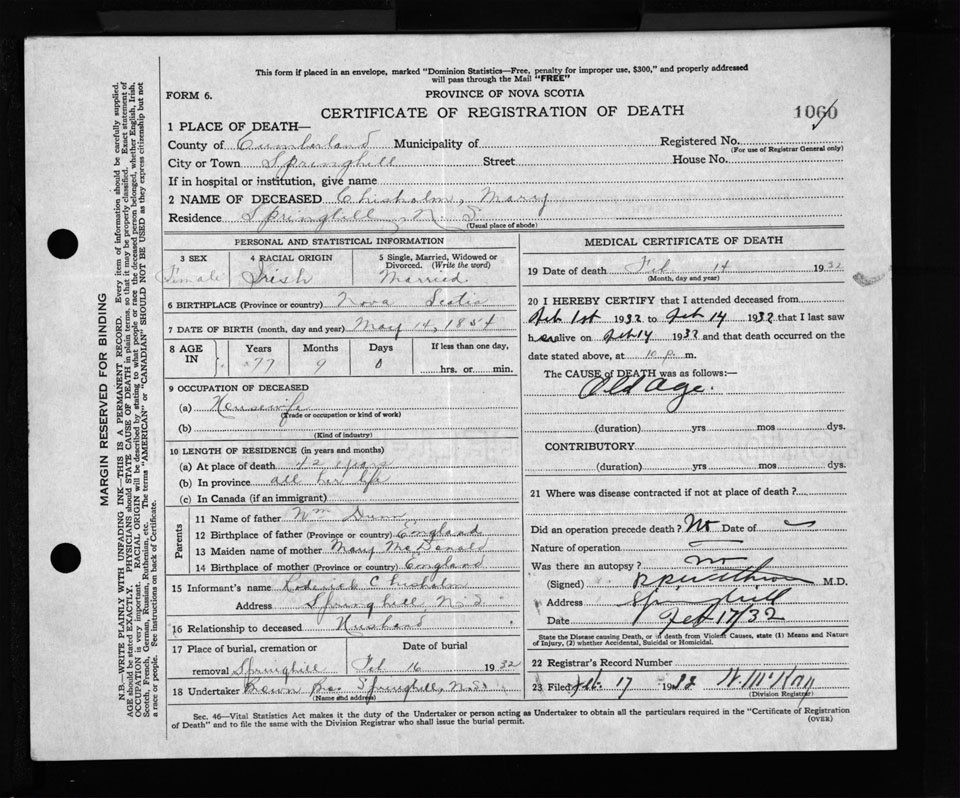 This form if placed in an envelope, marked "Dominion Statistics—Free, penalty for improper use, $300," and properly addressed
will pass through the Mail "FREE"
FORM 6.
PROVINCE OF NOVA SCOTIA
CERTIFICATE OF REGISTRATION OF DEATH
1060
1 PLACE OF DEATH—
County of Cumberland Municipality of Registered No.
(For use of Registrar General only)
City or Town Springhill Street House No.
If in hospital or institution, give name
2 NAME OF DECEASED Chisholm, Mary
Residence Springhill, N. S.
(Usual place of abode)
PERSONAL AND STATISTICAL INFORMATION
3 SEX 4 RACIAL ORIGIN 5 Single, Married, Widowed or
Divorced. (Write the word)
Female Irish Married
6 BIRTHPLACE (Province or country) Nova Scotia
7 DATE OF BIRTH (month, day and year) May 14, 1854
8 AGE IN Years Months Days If less than one day,
77 9 0 hrs. or min.
9 OCCUPATION OF DECEASED
(a) Housewife
(Trade or occupation or kind of work)
(b)
(Kind of industry)
10 LENGTH OF RESIDENCE (in years and months)
(a) At place of death 42 years
(b) In province all her life
(c) In Canada (if an immigrant)
Parents
11 Name of father Wm Dunn
12 Birthplace of father (Province or country) England
13 Maiden name of mother Mary McDonald
14 Birthplace of mother (Province or country) England
15 Informant's name Roderick Chisholm
Address Springhill N.S
16 Relationship to deceased Husband
17 Place of burial, cremation or Date of burial
removal Springhill Feb 16 1932
18 Undertaker Brown Bros Springhill, N.S.
(Name and address)
MEDICAL CERTIFICATE OF DEATH
19 Date of death Feb. 14 1932
(Month, day and year)
20 I HEREBY CERTIFY that I attended deceased from
Feb 1st 1932 to Feb 14 1932 that I last saw
her alive on Feb 14 1932 and that death occurred on the
date stated above, at 10 p. m.
The CAUSE of DEATH was as follows:—
Old Age.
(duration) yrs mos dys.
CONTRIBUTORY
(duration) yrs mos dys.
21 Where was disease contracted if not at place of death?
Did an operation precede death? No Date of
Nature of operation
Was there an autopsy? no
(Signed) M.D.
Address Springhill
Date Feb 17/32
State the Disease causing Death, or in death from Violent Causes, state (1) Means and Nature
of Injury, (2) whether Accidental, Suicidal or Homicidal.
22 Registrar's Record Number
23 Filed Feb. 17 1932
(Division Registrar)
Sec. 46—Vital Statistics Act makes it the duty of the Undertaker or person acting as Undertaker to obtain all the particulars required in the "Certificate of Registration
of Death" and to file the same with the Division Registrar who shall issue the burial permit.
(OVER)
MARGIN RESERVED FOR BINDING
N.B.—WRITE PLAINLY WITH UNFADING INK—THIS IS A PERMANENT RECORD. Every item of information should be carefully supplied.
AGE should be stated EXACTLY. PHYSICIANS should STATE CAUSE OF DEATH in plain terms, so that it may be properly classified. Exact statement of
OCCUPATION is very important. RACIAL ORIGIN will be described by stating to what people or race the deceased person belonged, whether English, Irish,
Scotch, French, German, Russian, Ruthenian, etc. The terms "AMERICAN" or "CANADIAN" SHOULD NOT BE USED as they express citizenship but not
a race or people. See instructions on back of Certificate.